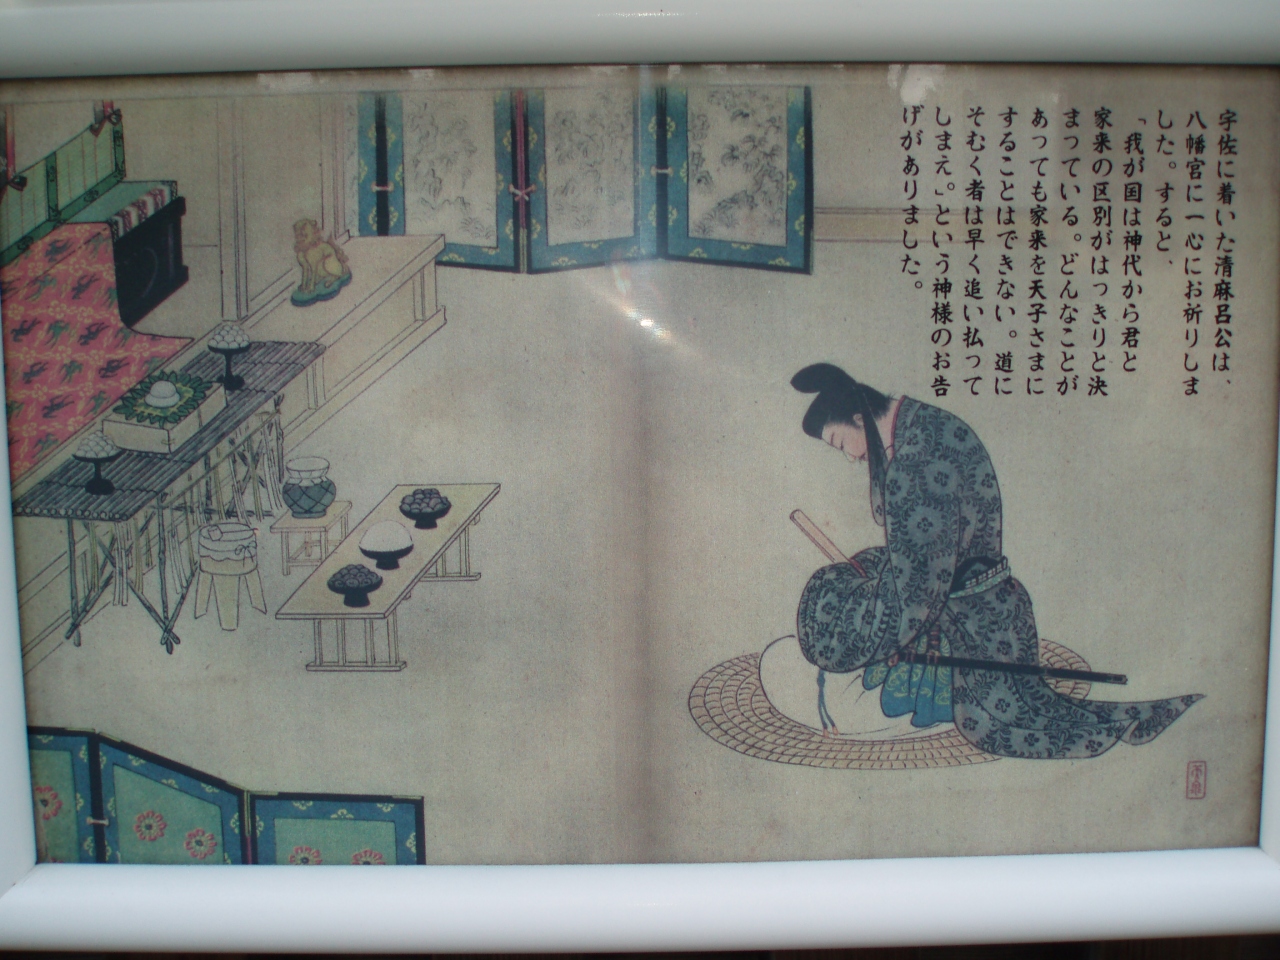 宇佐に着いた清麻呂公は、
八幡宮に一心にお祈りしま
した。すると、
「我が国は神代から君と
家来の区別がはっきりと決
まっている。どんなことが
あっても家来を天子さまに
することはできない。道に
そむく者は早く追い払って
しまえ。」という神様のお告
げがありました。